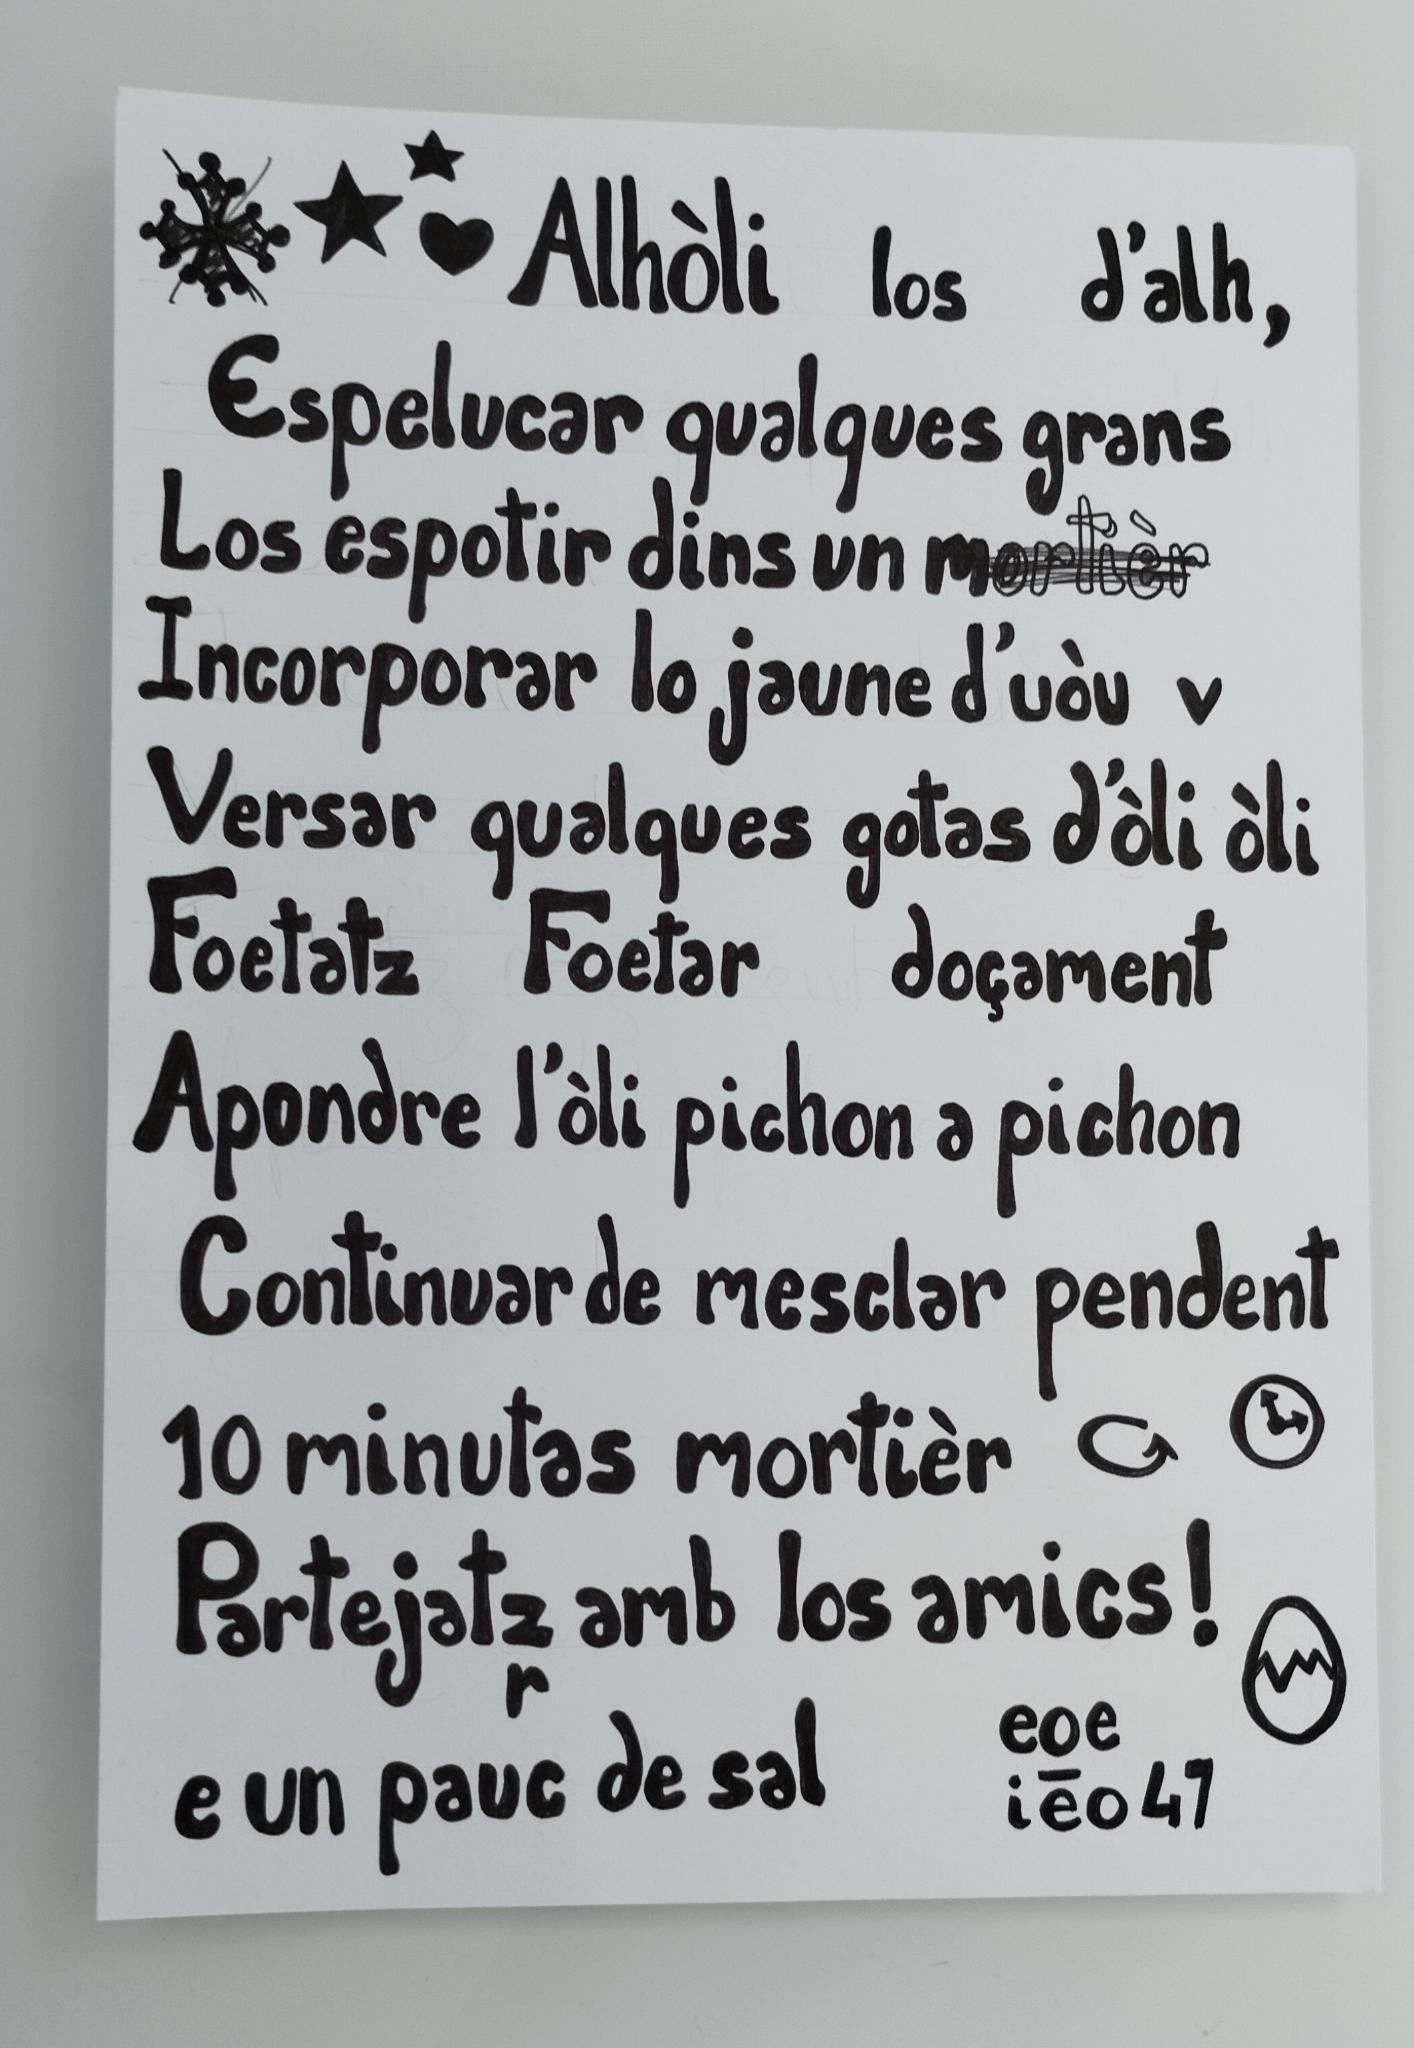 Alhòli los d'alh,
Espelucar qualques grans
Los espotir dins un mortièr
Incorporar lo jaune d'uòu v
Versar qualques gotas d'òli òli
Foetatz Foetar doçament
Apondre l'òli pichon a pichon
Continuar de mesclar pendent
10 minutas mortièr
Partejatz amb los amics!
r
e un pauc de sal
eoe
ieo 47